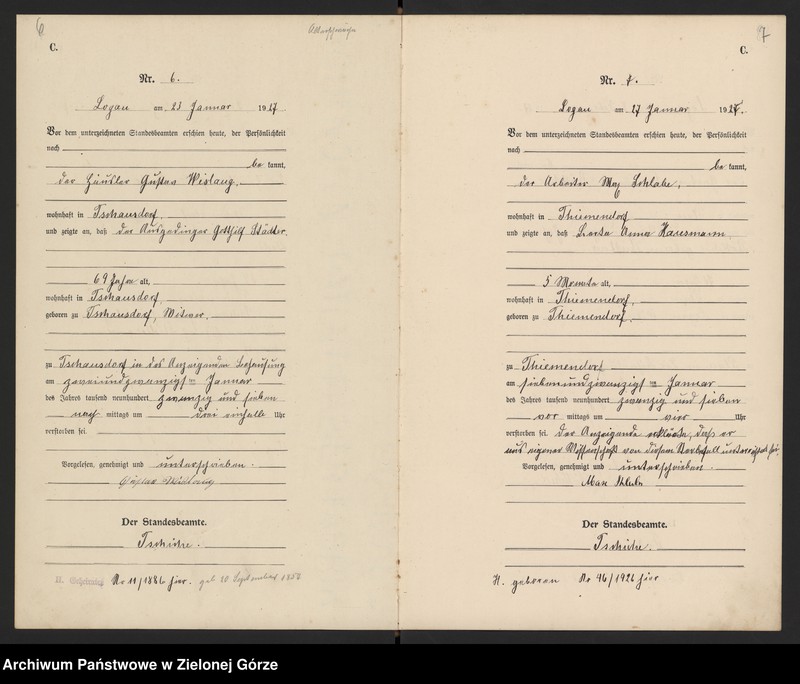 6
C.
Nr. 6.
Logau am 23 Januar 1927.
Vor dem unterzeichneten Standesbeamten erschien heute, der Persönlichkeit
nach
be kannt,
der Häusler Gustav Wislaug,
wohnhaft in Tschausdorf,
und zeigte an, daß der Ausgedinger Gotthilf Städter,
69 Jahre alt,
wohnhaft in Tschausdorf,
geboren zu Tschausdorf, Witwer,
zu Tschausdorf in des Anzeigenden Behausung
am zweiundzwanzigsten Januar
des Jahres tausend neunhundert zwanzig und sieben
nach mittags um drei einhalb Uhr
verstorben sei.
Vorgelesen, genehmigt und unterschrieben.
Gustav
Der Standesbeamte.
Nr 11/1886 hier. geb 20 September
7
C.
Nr. 7.
Logau am 27 Januar 1927.
Vor dem unterzeichneten Standesbeamten erschien heute, der Persönlichkeit
nach
be kannt,
der Arbeiter Max Schlabe,
wohnhaft in Thiemendorf
und zeigte an, daß Anna Hausmann,
5 Monate alt,
wohnhaft in Thiemendorf,
geboren zu Thiemendorf,
zu Thiemendorf
am siebenundzwanzigsten Januar
des Jahres tausend neunhundert zwanzig und sieben
vor mittags um vier Uhr
verstorben sei. Der Anzeigende erklärte, daß er
aus eigener Wissenschaft von diesem Sterbefall unterrichtet sei.
Vorgelesen, genehmigt und unterschrieben.
Max
Der Standesbeamte.
H. geboren Nr 46/1926 hier
Archiwum Państwowe w Zielonej Górze